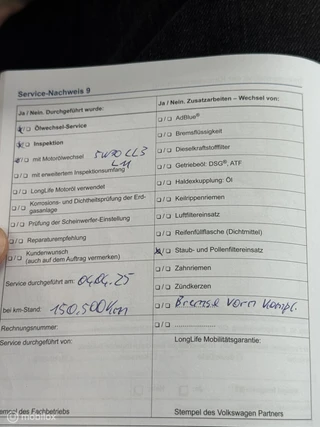 Service-Nachweis 9
Ja / Nein. Durchgeführt wurde:
☒/☐ Ölwechsel-Service
☒/☐ Inspektion
☒/☐ mit Motorölwechsel 5W30 LL3
☐/☐ mit erweitertem Inspektionsumfang
☐/☐ LongLife Motoröl verwendet
☐/☐ Korrosions- und Dichtheitsprüfung der Erd-
gasanlage
☐/☐ Prüfung der Scheinwerfer-Einstellung
☐/☐ Reparaturempfehlung
☐/☐ Kundenwunsch
(auch auf dem Auftrag vermerken)
Service durchgeführt am: 04.04.25
bei km-Stand: 150.500Km
Rechnungsnummer:
Service durchgeführt von:
Stempel des Fachbetriebs
Ja / Nein. Zusatzarbeiten – Wechsel von:
☐/☐ AdBlue®
☐/☐ Bremsflüssigkeit
☐/☐ Dieselkraftstofffilter
☐/☐ Getriebeöl: DSG®, ATF
☐/☐ Haldexkupplung: Öl
☐/☐ Keilrippenriemen
☐/☐ Luftfiltereinsatz
☐/☐ Reifenfüllflasche (Dichtmittel)
☒/☐ Staub- und Pollenfiltereinsatz
☐/☐ Zahnriemen
☐/☐ Zündkerzen
☐/☐ Bremse Vorn Kompl.
☐/☐ ....................
LongLife Mobilitätsgarantie:
Stempel des Volkswagen Partners
mobilox